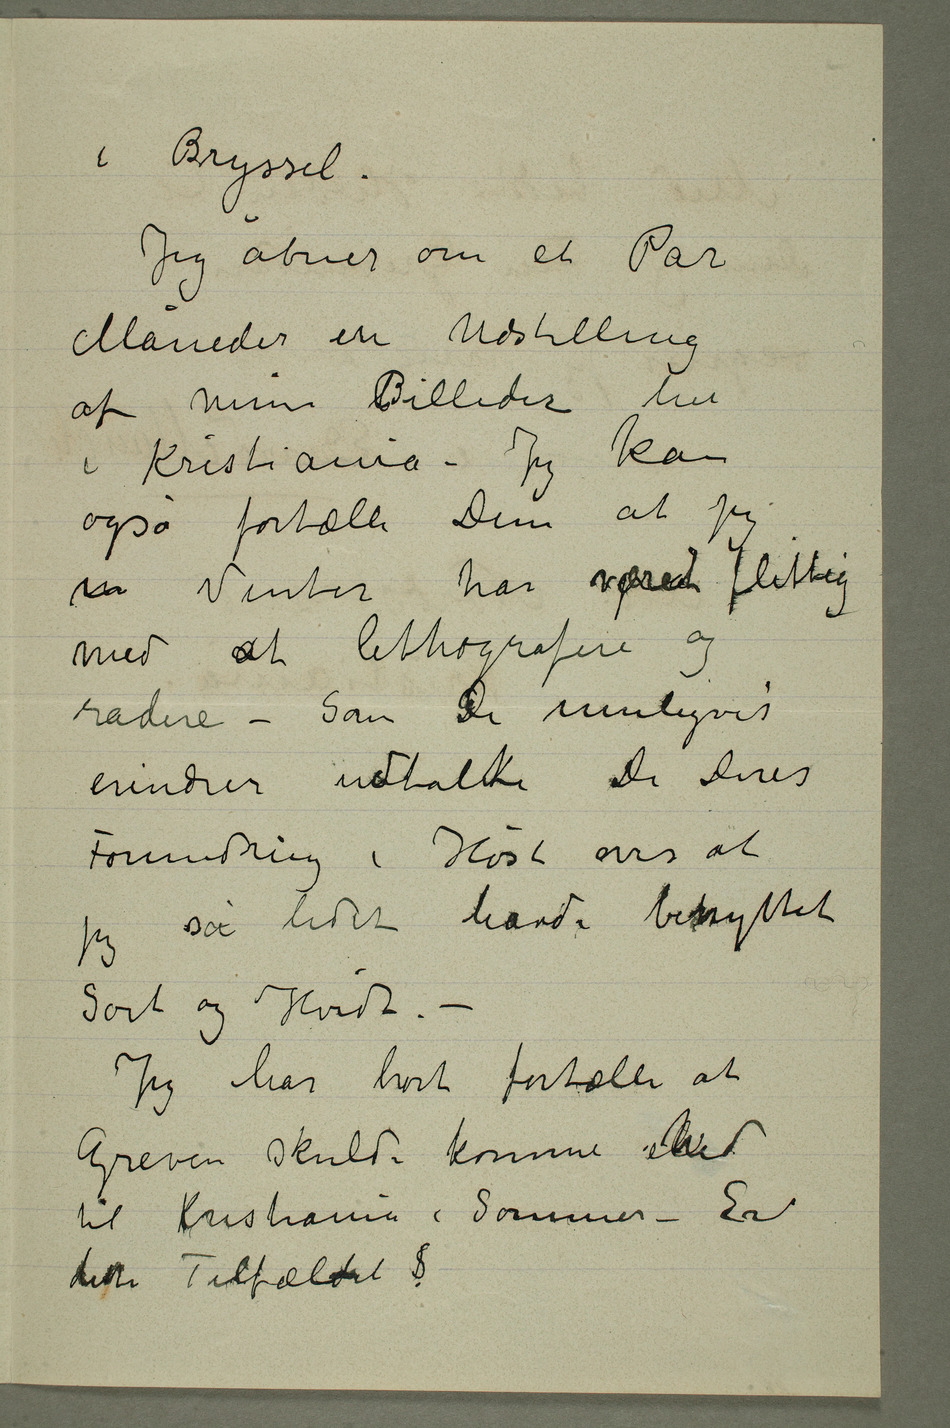 i Bryssel.
Jeg åbner om et Par
Måneder en Udstilling
af mine Billeder her
i Kristiania – Jeg kan
også fortælle Dem at jeg
Vinter har været flittig
med at lithografere og
radere – Som De rimeligvis
erindrer udtalte De Deres
Forundring i Høst over at
jeg så lidet havde benyttet
Sort og Hvidt. –
Jeg har hørt fortælle at
Greven skulde komme
til Kristiania i Sommer – Er
dette Tilfældet?